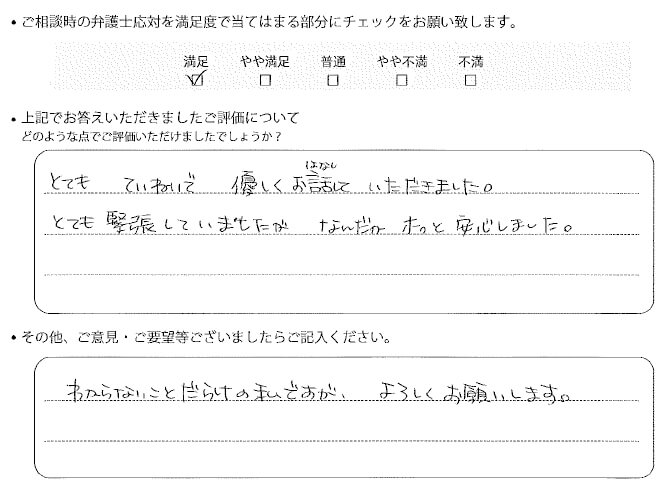 • ご相談時の弁護士応対を満足度で当てはまる部分にチェックをお願い致します。
満足 やや満足 普通 やや不満 不満
☑ □ □ □ □
• 上記でお答えいただきましたご評価について
どのような点でご評価いただけましたでしょうか？
はなし
とても ていねいで 優しくお話して いただきました。
とても緊張していましたが なんだか ホッと 安心しました。
• その他、ご意見・ご要望等ございましたらご記入ください。
わからないことだらけの私ですが、 よろしくお願いします。